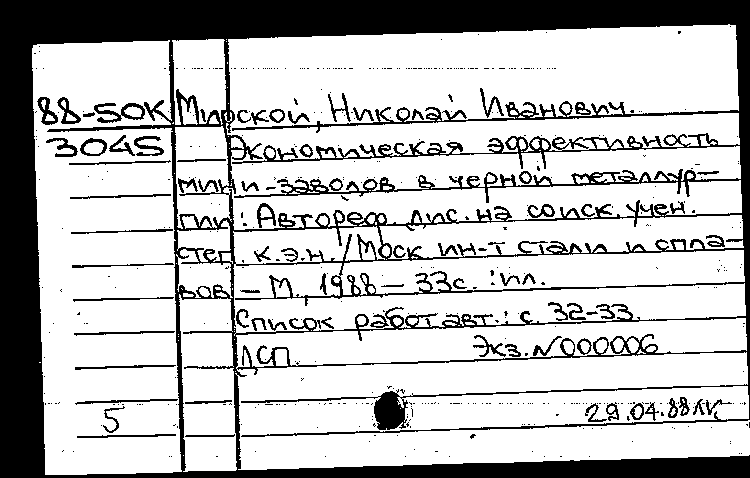 88-50К Мирской, Николай Иванович.
3045 Экономическая эффективность
мини-заводов в черной металлур-
гии: Автореф. дис. на соиск. учен.
степ. к.э.н. / Моск ин-т стали и спла-
вов - М., 1988 - 33с. : ил.
Список работ авт.: с. 32-33.
ДСП. Экз. N000006
5 29.04.88